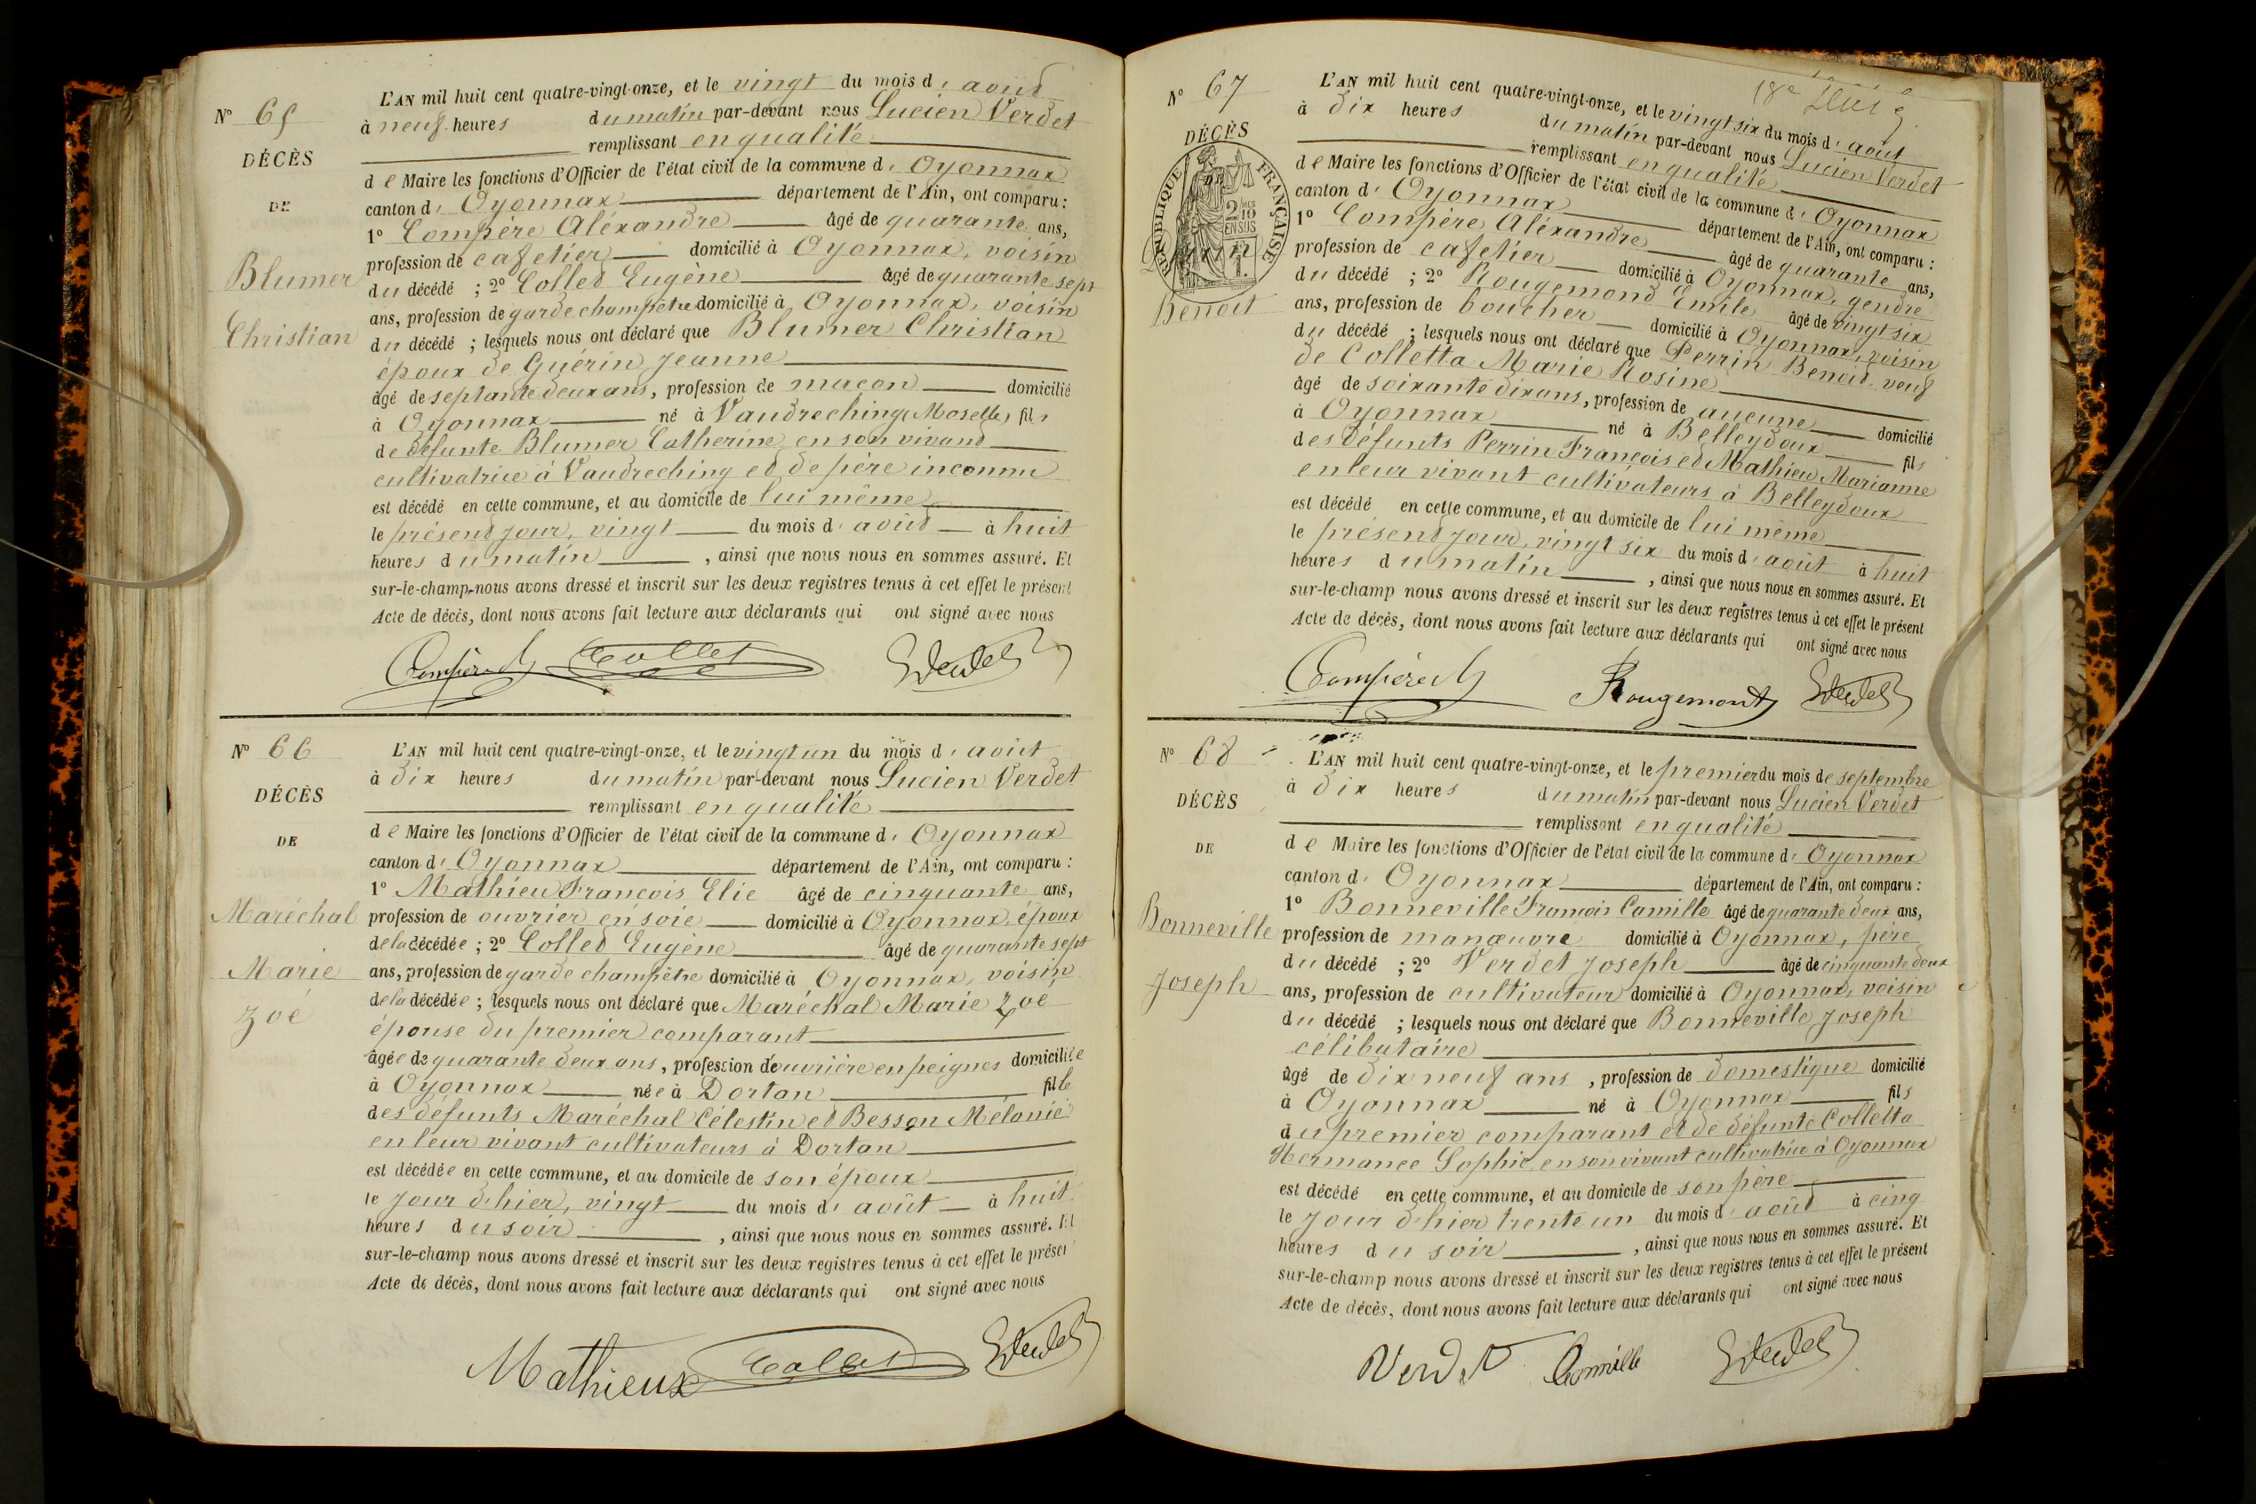 N° 65
DÉCÈS
DE
Blumer
Christian
L'AN mil huit cent quatre-vingt-onze, et le vingt du mois d' août
à neuf heures du matin par-devant nous Lucien Verdet
remplissant en qualité
de Maire les fonctions d'Officier de l'état civil de la commune d' Oyonnax
canton d' Oyonnax département de l'Ain, ont comparu :
1° Compère Aléxandre âgé de quarante ans,
profession de cafetier domicilié à Oyonnax, voisin
du décédé ; 2° Collet Eugène âgé de quarante sept
ans, profession de garde champêtre domicilié à Oyonnax, voisin
du décédé ; lesquels nous ont déclaré que Blumer Christian
époux de Guérin Jeanne
âgé de septante deux ans, profession de maçon domicilié
à Oyonnax né à Vaudreching, Moselle, fils
de défunte Blumer Catherine en son vivant
cultivatrice à Vaudreching et de père inconnu
est décédé en cette commune, et au domicile de lui même
le présent jour, vingt du mois d' août à huit
heures du matin, ainsi que nous nous en sommes assuré. Et
sur-le-champ nous avons dressé et inscrit sur les deux registres tenus à cet effet le présent
Acte de décès, dont nous avons fait lecture aux déclarants qui ont signé avec nous
Compère Al Collet Verdet
N° 66
DÉCÈS
DE
Maréchal
Marie
Zoé
L'AN mil huit cent quatre-vingt-onze, et le vingt un du mois d' août
à dix heures du matin par-devant nous Lucien Verdet
remplissant en qualité
de Maire les fonctions d'Officier de l'état civil de la commune d' Oyonnax
canton d' Oyonnax département de l'Ain, ont comparu :
1° Mathieu François Elie âgé de cinquante ans,
profession de ouvrier en soie domicilié à Oyonnax, époux
de la décédée ; 2° Collet Eugène âgé de quarante sept
ans, profession de garde champêtre domicilié à Oyonnax, voisin
de la décédée ; lesquels nous ont déclaré que Maréchal Marie Zoé
épouse du premier comparant
âgée de quarante deux ans, profession d'ouvrière en peignes domiciliée
à Oyonnax née à Dortan fille
des défunts Maréchal Célestin et Besson Mélanie
en leur vivant cultivateurs à Dortan
est décédée en cette commune, et au domicile de son époux
le jour d'hier, vingt du mois d' août à huit
heures du soir, ainsi que nous nous en sommes assuré. Et
sur-le-champ nous avons dressé et inscrit sur les deux registres tenus à cet effet le présent
Acte de décès, dont nous avons fait lecture aux déclarants qui ont signé avec nous
Mathieux Collet Verdet
18e
N° 67
DÉCÈS
DE
RÉPUBLIQUE FRANÇAISE
2/10 EN SUS
Benoit
L'AN mil huit cent quatre-vingt-onze, et le vingt six du mois d' août
à dix heures du matin par-devant nous Lucien Verdet
remplissant en qualité
de Maire les fonctions d'Officier de l'état civil de la commune d' Oyonnax
canton d' Oyonnax département de l'Ain, ont comparu :
1° Compère Aléxandre âgé de quarante ans,
profession de cafetier domicilié à Oyonnax, gendre
du décédé ; 2° Rougemond Emile âgé de vingt six
ans, profession de boucher domicilié à Oyonnax, voisin
du décédé ; lesquels nous ont déclaré que Perrin Benoit veuf
de Colletta Marie Rosine
âgé de soixante dix ans, profession de aucune domicilié
à Oyonnax né à Belleydoux fils
des défunts Perrin François et Mathieu Marianne
en leur vivant cultivateurs à Belleydoux
est décédé en cette commune, et au domicile de lui même
le présent jour, vingt six du mois d' août à huit
heures du matin, ainsi que nous nous en sommes assuré. Et
sur-le-champ nous avons dressé et inscrit sur les deux registres tenus à cet effet le présent
Acte de décès, dont nous avons fait lecture aux déclarants qui ont signé avec nous
Compère Al Rougemont Verdet
N° 68
DÉCÈS
DE
Bonneville
Joseph
L'AN mil huit cent quatre-vingt-onze, et le premier du mois de septembre
à dix heures du matin par-devant nous Lucien Verdet
remplissant en qualité
de Maire les fonctions d'Officier de l'état civil de la commune d' Oyonnax
canton d' Oyonnax département de l'Ain, ont comparu :
1° Bonneville François Camille âgé de quarante deux ans,
profession de manœuvre domicilié à Oyonnax, père
du décédé ; 2° Verdet Joseph âgé de cinquante deux
ans, profession de cultivateur domicilié à Oyonnax, voisin
du décédé ; lesquels nous ont déclaré que Bonneville Joseph
célibataire
âgé de dix neuf ans, profession de domestique domicilié
à Oyonnax né à Oyonnax fils
du premier comparant et de défunte Colletta
Hermance Sophie, en son vivant cultivatrice à Oyonnax
est décédé en cette commune, et au domicile de son père
le jour d'hier trente un du mois d' août à cinq
heures du soir, ainsi que nous nous en sommes assuré. Et
sur-le-champ nous avons dressé et inscrit sur les deux registres tenus à cet effet le présent
Acte de décès, dont nous avons fait lecture aux déclarants qui ont signé avec nous
Verdet Camille Verdet